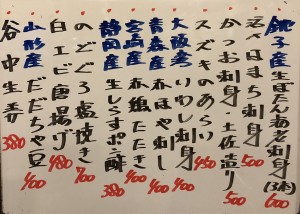 銚子産生ぼたん海老刺身(3本) 600
活〆はまち刺身 500
かつお刺身・土佐造り 500
スズキのあらい 450
大阪産いわし刺身 400
青森産ほやし 400
宮崎産赤鶏たたき 400
静岡産生しらすポン酢 380
のどぐろ塩焼き 700
白エビ唐揚げ 480
山形産だだちゃ豆 400
谷中生姜 380